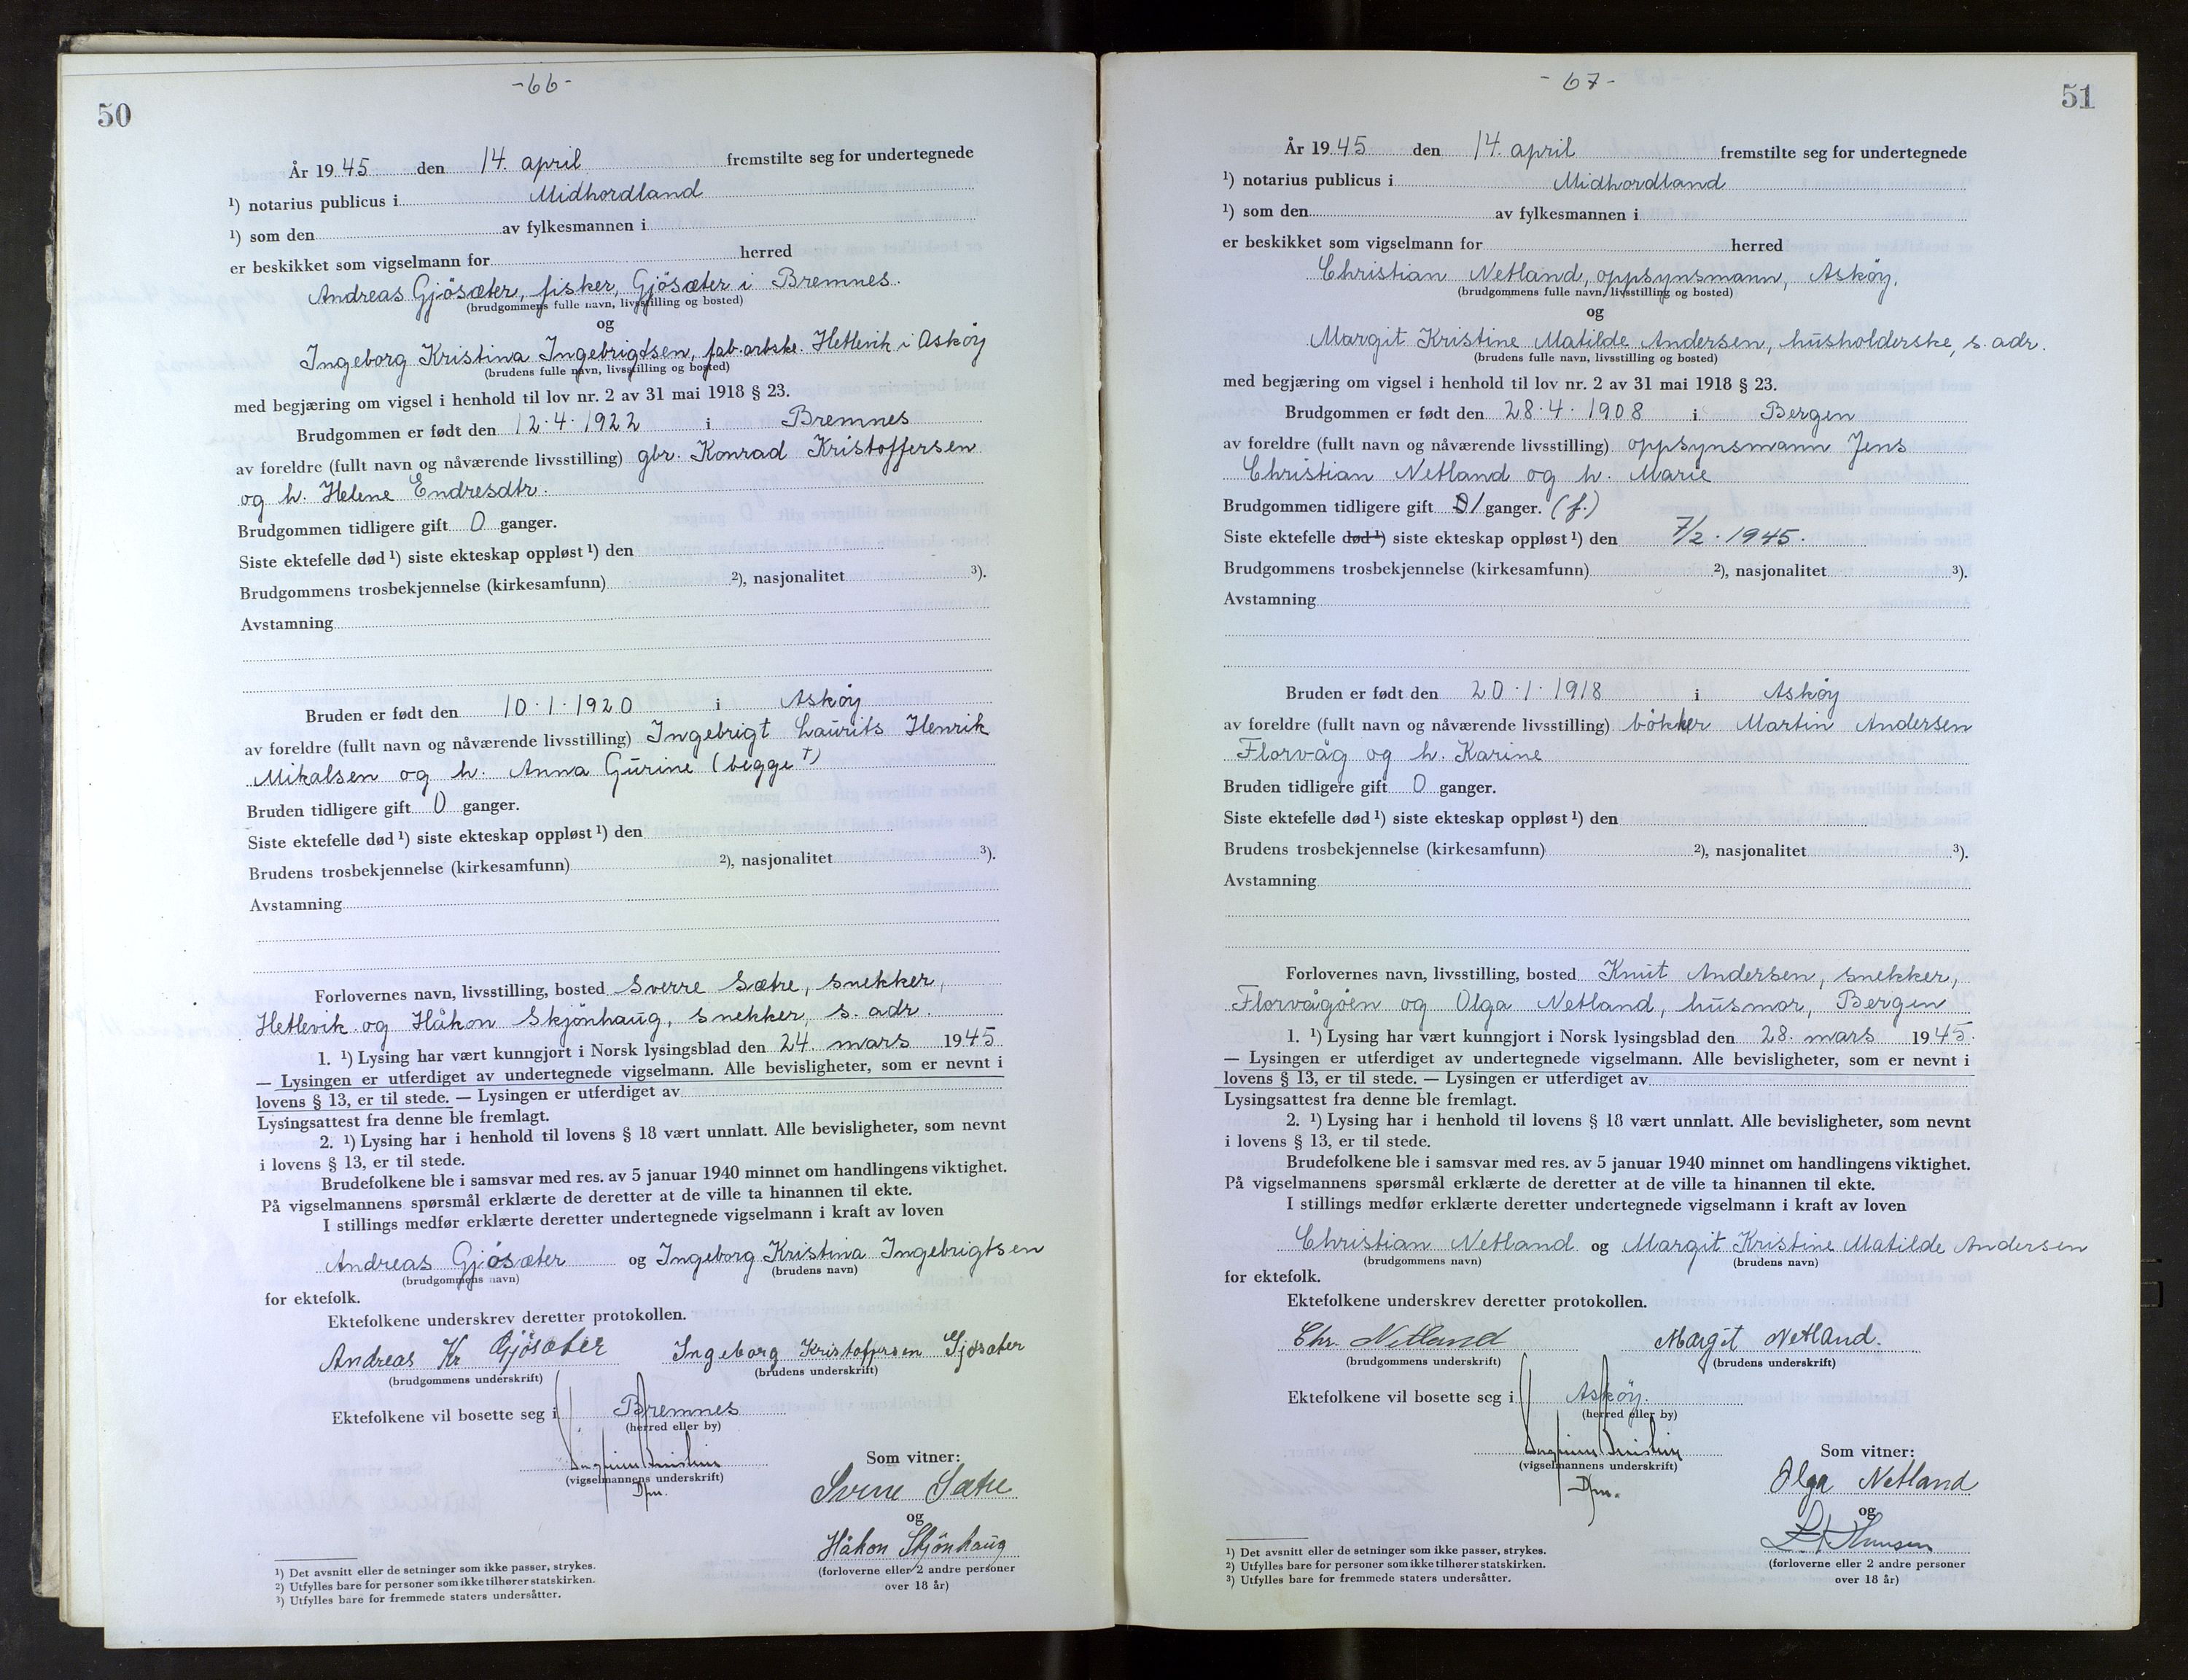 -66-
50
År 1945 den 14. april fremstilte seg for undertegnede
¹) notarius publicus i Midhordland
¹) som den av fylkesmannen i
er beskikket som vigselmann for herred
Andreas Gjösæter, fisker, Gjösæter i Bremnes.
(brudgommens fulle navn, livsstilling og bosted)
og
Ingeborg Kristina Ingebrigtsen, fab.arbske. Hetlevik i Asköy
(brudens fulle navn, livsstilling og bosted)
med begjæring om vigsel i henhold til lov nr. 2 av 31 mai 1918 § 23.
Brudgommen er født den 12.4.1922 i Bremnes
av foreldre (fullt navn og nåværende livsstilling) gbr. Konrad Kristoffersen
og h. Helene Endresdtr.
Brudgommen tidligere gift 0 ganger.
Siste ektefelle død ¹) siste ekteskap oppløst ¹) den
Brudgommens trosbekjennelse (kirkesamfunn) ²), nasjonalitet ³).
Avstamning
Bruden er født den 10.1.1920 i Asköy
av foreldre (fullt navn og nåværende livsstilling) Ingebrigt Laurits Henrik
Mikalsen og h. Anna Gurine (begge †)
Bruden tidligere gift 0 ganger.
Siste ektefelle død ¹) siste ekteskap oppløst ¹) den
Brudens trosbekjennelse (kirkesamfunn) ²), nasjonalitet ³).
Avstamning
Forlovernes navn, livsstilling, bosted Sverre Sætre, snekker,
Hetlevik og Håkon Skjönhaug, snekker, s. adr.
1. ¹) Lysing har vært kunngjort i Norsk lysingsblad den 24. mars 1945
— Lysingen er utferdiget av undertegnede vigselmann. Alle bevisligheter, som er nevnt i
lovens § 13, er til stede. — Lysingen er utferdiget av
Lysingsattest fra denne ble fremlagt.
2. ¹) Lysing har i henhold til lovens § 18 vært unnlatt. Alle bevisligheter, som nevnt
i lovens § 13, er til stede.
Brudefolkene ble i samsvar med res. av 5 januar 1940 minnet om handlingens viktighet.
På vigselmannens spørsmål erklærte de deretter at de ville ta hinannen til ekte.
I stillings medfør erklærte deretter undertegnede vigselmann i kraft av loven
Andreas Gjösæter og Ingeborg Kristina Ingebrigtsen
(brudgommens navn) (brudens navn)
for ektefolk.
Ektefolkene underskrev deretter protokollen.
Andreas Kr Gjösæter Ingeborg Kristoffersen Gjøsæter
(brudgommens underskrift) (brudens underskrift)
Ektefolkene vil bosette seg i Bremnes
(herred eller by)
(vigselmannens underskrift)
Dfm.
Som vitner:
Sverre Sætre
og
Håkon Skjönhaug
(forloverne eller 2 andre personer
over 18 år)
¹) Det avsnitt eller de setninger som ikke passer, strykes.
²) Utfylles bare for personer som ikke tilhører statskirken.
³) Utfylles bare for fremmede staters undersåtter.
-67-
51
År 1945 den 14. april fremstilte seg for undertegnede
¹) notarius publicus i Midhordland
¹) som den av fylkesmannen i
er beskikket som vigselmann for herred
Christian Netland, oppsynsmann, Asköy.
(brudgommens fulle navn, livsstilling og bosted)
og
Margit Kristine Matilde Andersen, husholderske, s. adr.
(brudens fulle navn, livsstilling og bosted)
med begjæring om vigsel i henhold til lov nr. 2 av 31 mai 1918 § 23.
Brudgommen er født den 28.4.1908 i Bergen
av foreldre (fullt navn og nåværende livsstilling) oppsynsmann Jens
Christian Netland og h. Marie
Brudgommen tidligere gift 1 ganger. (f.)
Siste ektefelle død ¹) siste ekteskap oppløst ¹) den 7/2.1945.
Brudgommens trosbekjennelse (kirkesamfunn) ²), nasjonalitet ³).
Avstamning
Bruden er født den 20.1.1918 i Asköy
av foreldre (fullt navn og nåværende livsstilling) bökker Martin Andersen
Florvåg og h. Karine
Bruden tidligere gift 0 ganger.
Siste ektefelle død ¹) siste ekteskap oppløst ¹) den
Brudens trosbekjennelse (kirkesamfunn) ²), nasjonalitet ³).
Avstamning
Forlovernes navn, livsstilling, bosted Knut Andersen, snekker,
Florvågöen og Olga Netland, husmor, Bergen
1. ¹) Lysing har vært kunngjort i Norsk lysingsblad den 28. mars 1945.
— Lysingen er utferdiget av undertegnede vigselmann. Alle bevisligheter, som er nevnt i
lovens § 13, er til stede. — Lysingen er utferdiget av
Lysingsattest fra denne ble fremlagt.
2. ¹) Lysing har i henhold til lovens § 18 vært unnlatt. Alle bevisligheter, som nevnt
i lovens § 13, er til stede.
Brudefolkene ble i samsvar med res. av 5 januar 1940 minnet om handlingens viktighet.
På vigselmannens spørsmål erklærte de deretter at de ville ta hinannen til ekte.
I stillings medfør erklærte deretter undertegnede vigselmann i kraft av loven
Christian Netland og Margit Kristine Matilde Andersen
(brudgommens navn) (brudens navn)
for ektefolk.
Ektefolkene underskrev deretter protokollen.
Chr. Netland Margit Netland.
(brudgommens underskrift) (brudens underskrift)
Ektefolkene vil bosette seg i Asköy.
(herred eller by)
(vigselmannens underskrift)
Dfm.
Som vitner:
Olga Netland
og
(forloverne eller 2 andre personer
over 18 år)
¹) Det avsnitt eller de setninger som ikke passer, strykes.
²) Utfylles bare for personer som ikke tilhører statskirken.
³) Utfylles bare for fremmede staters undersåtter.